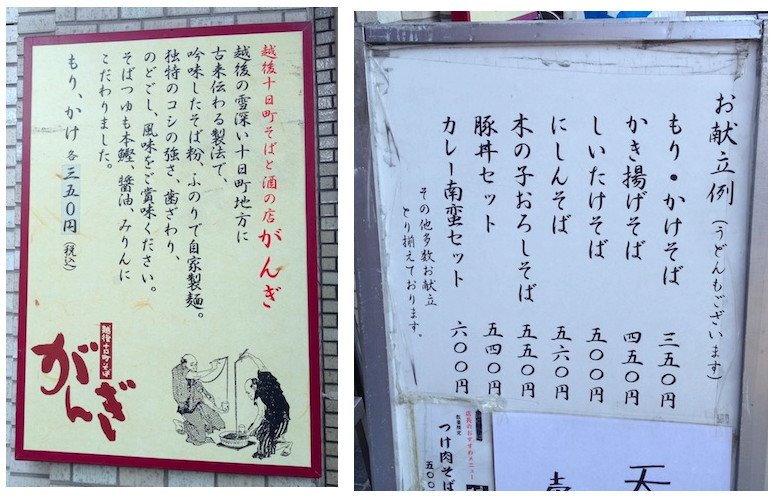 越後十日町そばと酒の店がんぎ
越後の雪深い十日町地方に
古来伝わる製法で、
吟味したそば粉、ふのりで自家製麺。
独特のコシの強さ、歯ざわり、
のどごし、風味をご賞味ください。
そばつゆも本鰹、醤油、みりんに
こだわりました。
もり、かけ 各三五〇円(税込)
越後十日町そば
がんぎ
お献立例(うどんもございます)
もり・かけそば 三五〇円
かき揚げそば 四五〇円
しいたけそば 五〇〇円
にしんそば 五六〇円
木の子おろしそば 五五〇円
豚丼セット 五四〇円
カレー南蛮セット 六〇〇円
その他多数お献立
とり揃えております。
店長のおすすめメニュー
数量限定
つけ肉そば
五〇〇
天